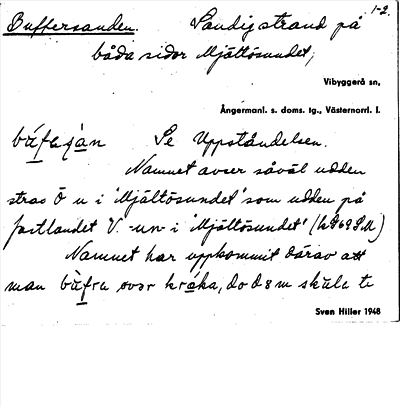 Buffersanden. Sandig strand på 1-2.
båda sidor Mjältösundet;
Vibyggerå sn,
Ångermanl. s. doms. tg., Västernorrl. l.
Se Uppståndelsen.
Namnet avser såväl udden
strax Ö u i 'Mjältösundet' som udden på
fastlandet V. -un- i 'Mjältösundet'
Namnet har uppkommit därav att
man
Sven Hiller 1948